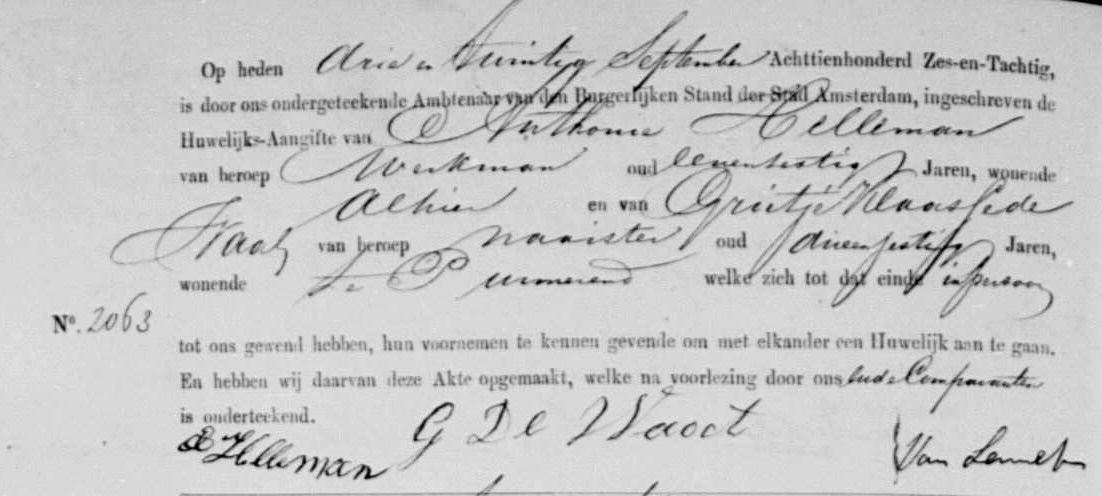 Op heden drie en twintig September Achttienhonderd Zes-en-Tachtig,
is door ons ondergeteekende Ambtenaar van den Burgerlijken Stand der Stad Amsterdam, ingeschreven de
Huwelijks-Aangifte van Anthonie Helleman
van beroep Werkman oud zevenfestig Jaren, wonende
Alhier en van Grietje Klaas de
Waal van beroep naaister oud drieenfestig Jaren,
wonende te Purmerend welke zich tot dat einde in persoon
No. 2063
tot ons gewend hebben, hun voornemen te kennen gevende om met elkander een Huwelijk aan te gaan.
En hebben wij daarvan deze Akte opgemaakt, welke na voorlezing door ons en de Comparanten
is onderteekend.
A Helleman G De Waal Van Lennep